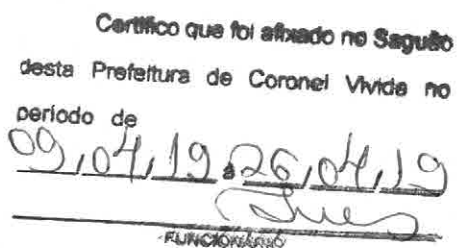 Certifico que foi afixado no Saguão
desta Prefeitura de Coronel Vivida no
período de
09,04,19 a 26,04,19
FUNCIONÁRIO